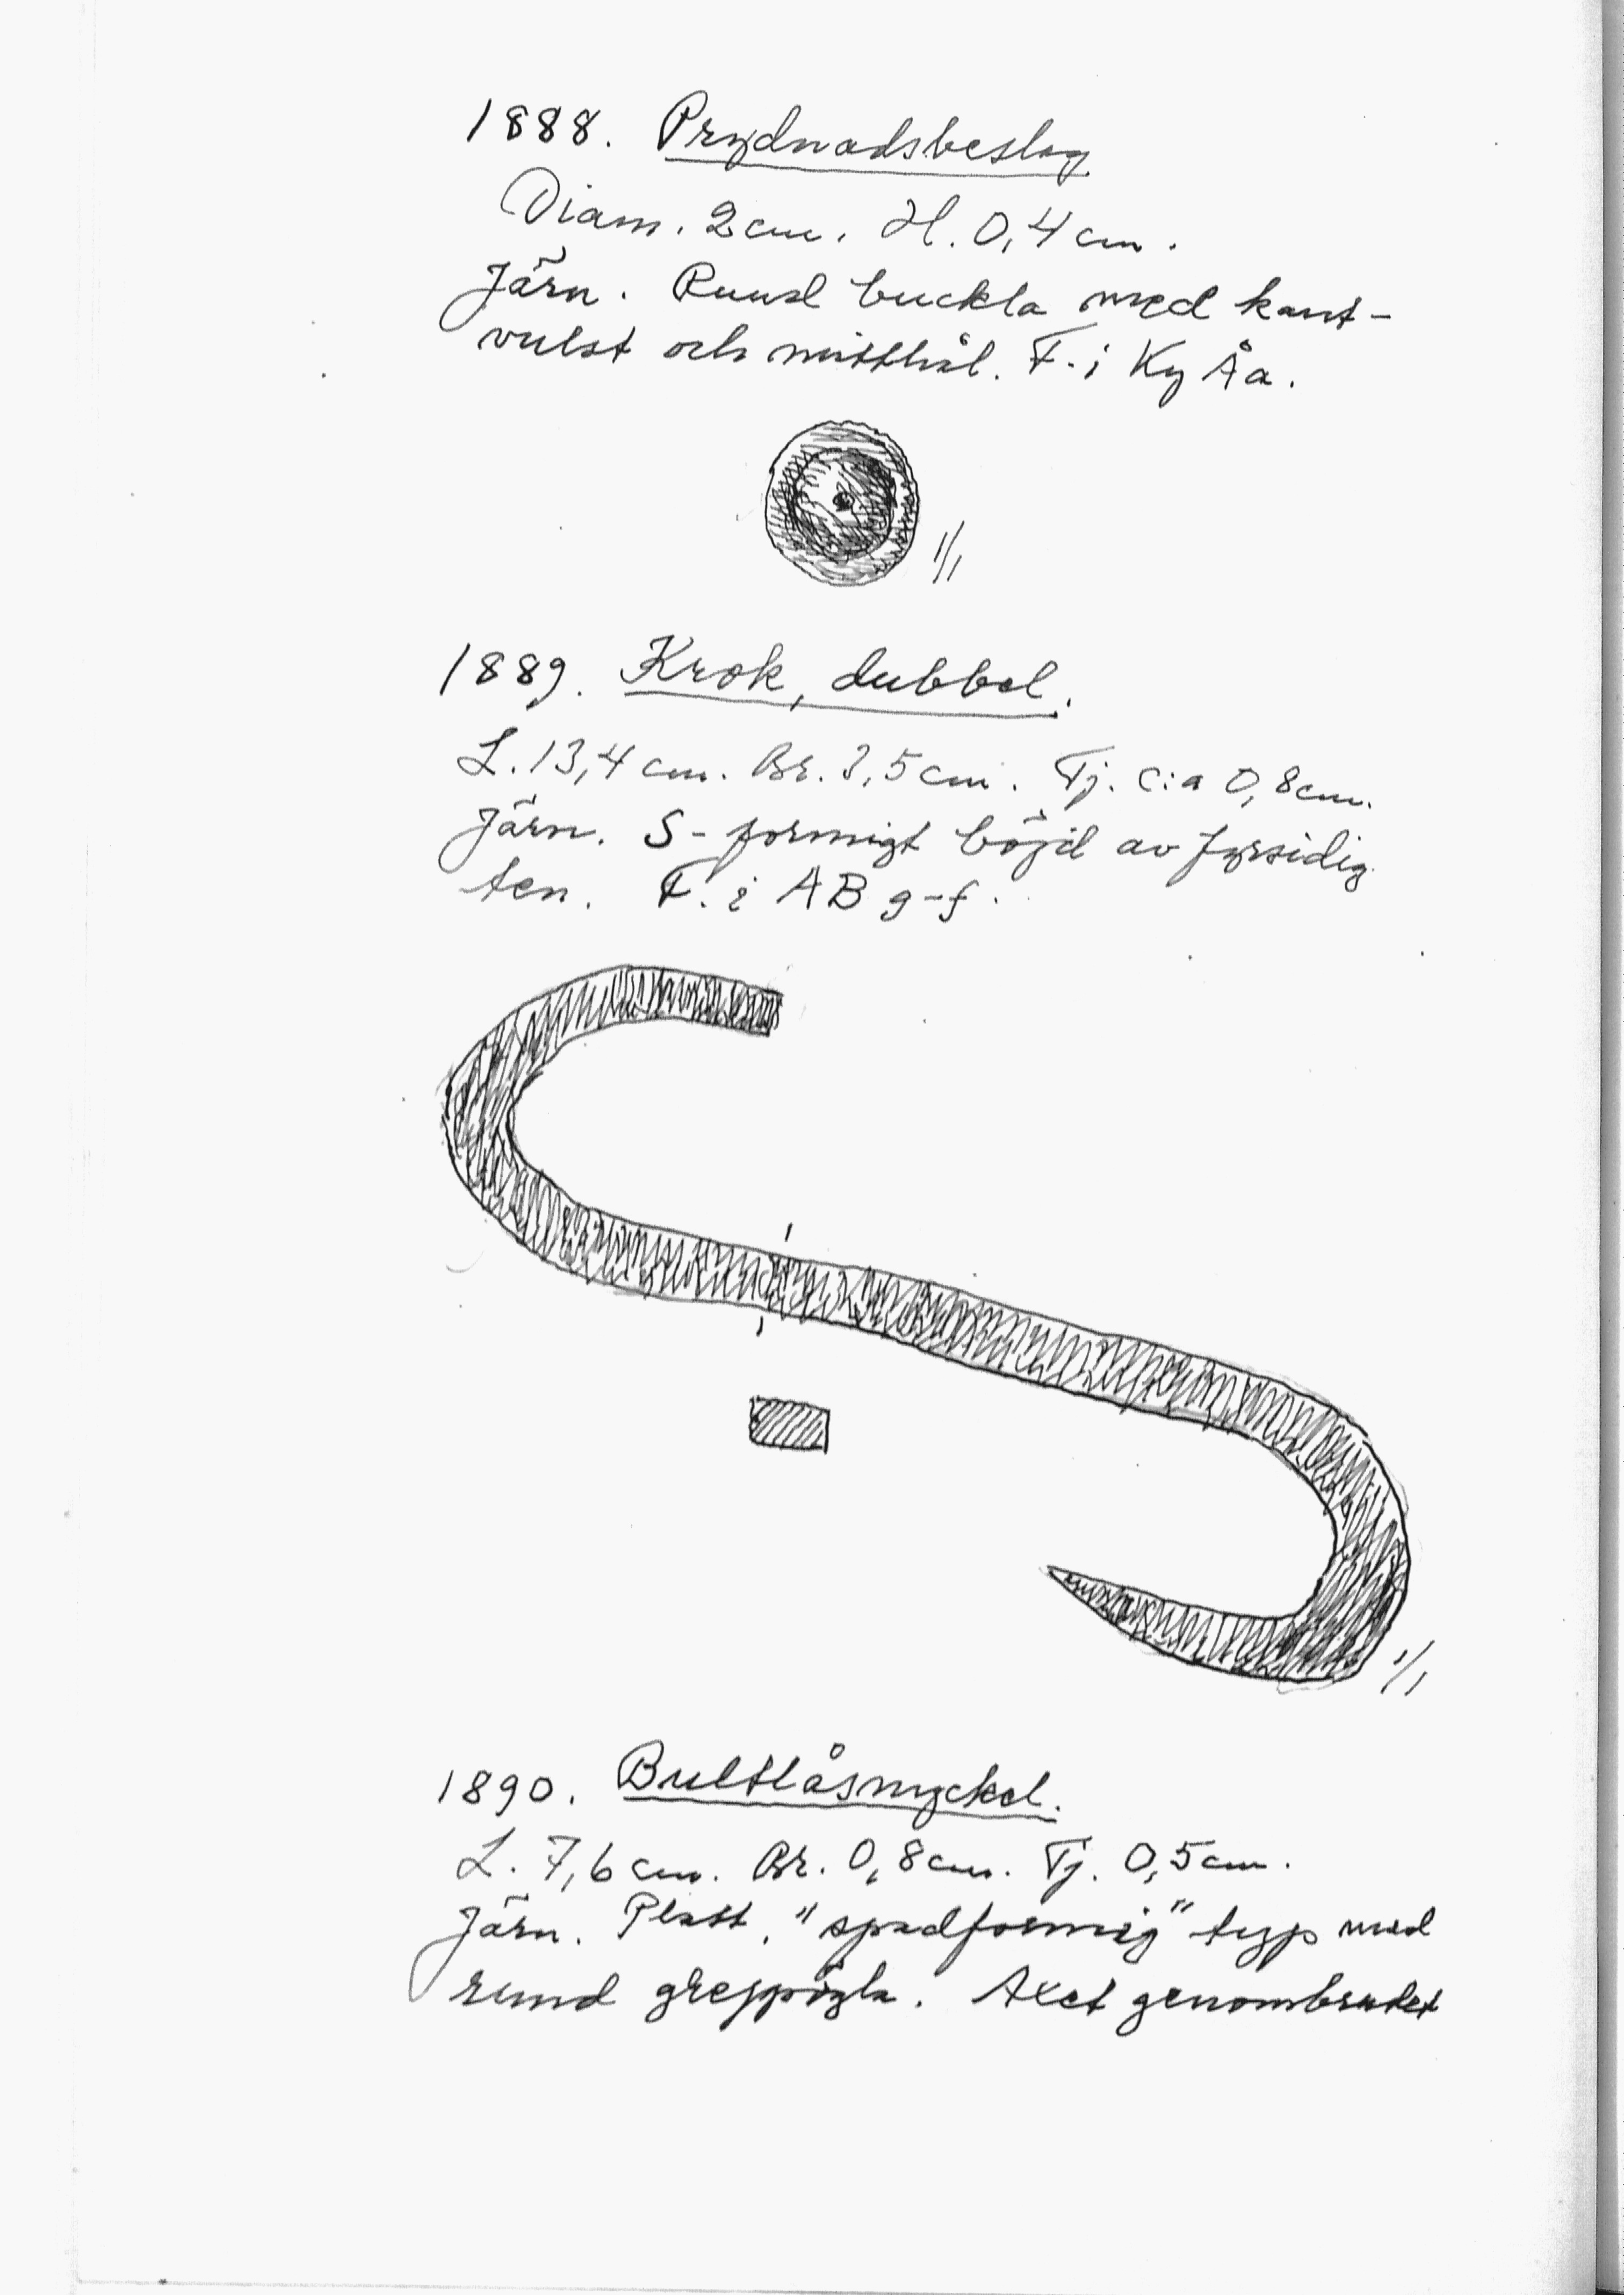 1888. Prydnadsbeslag
Diam. 2 cm. H. 0,4 cm.
Järn. Rund buckla med kant-
vulst och mitthål. F. i Ky Åa.
1/1
1889. Krok, dubbel.
L. 13,4 cm. Br. 3,5 cm. Tj. c:a 0,8 cm.
Järn. S-formigt böjd av fyrsidig
ten. F. i AB g-f.
1/1
1890. Bultlåsnyckel.
L. 7,6 cm. Br. 0,8 cm. Tj. 0,5 cm.
Järn. Platt, "spadformig" typ med
rund greppögla. Axet genombrutet